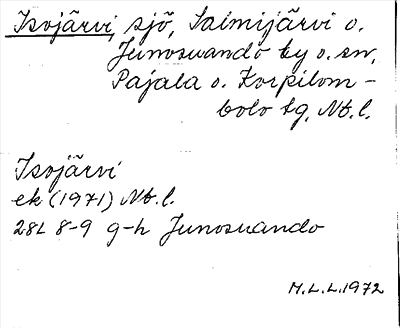 Isojärvi, sjö, Saimijärvi o.
Junosuando ky o. sn,
Pajala o. Korpilom-
bolo tg, Nb. l.
Isojärvi
ek (1971) Nb. l.
28L 8-9 g-h Junosuando
M.L.L. 1972